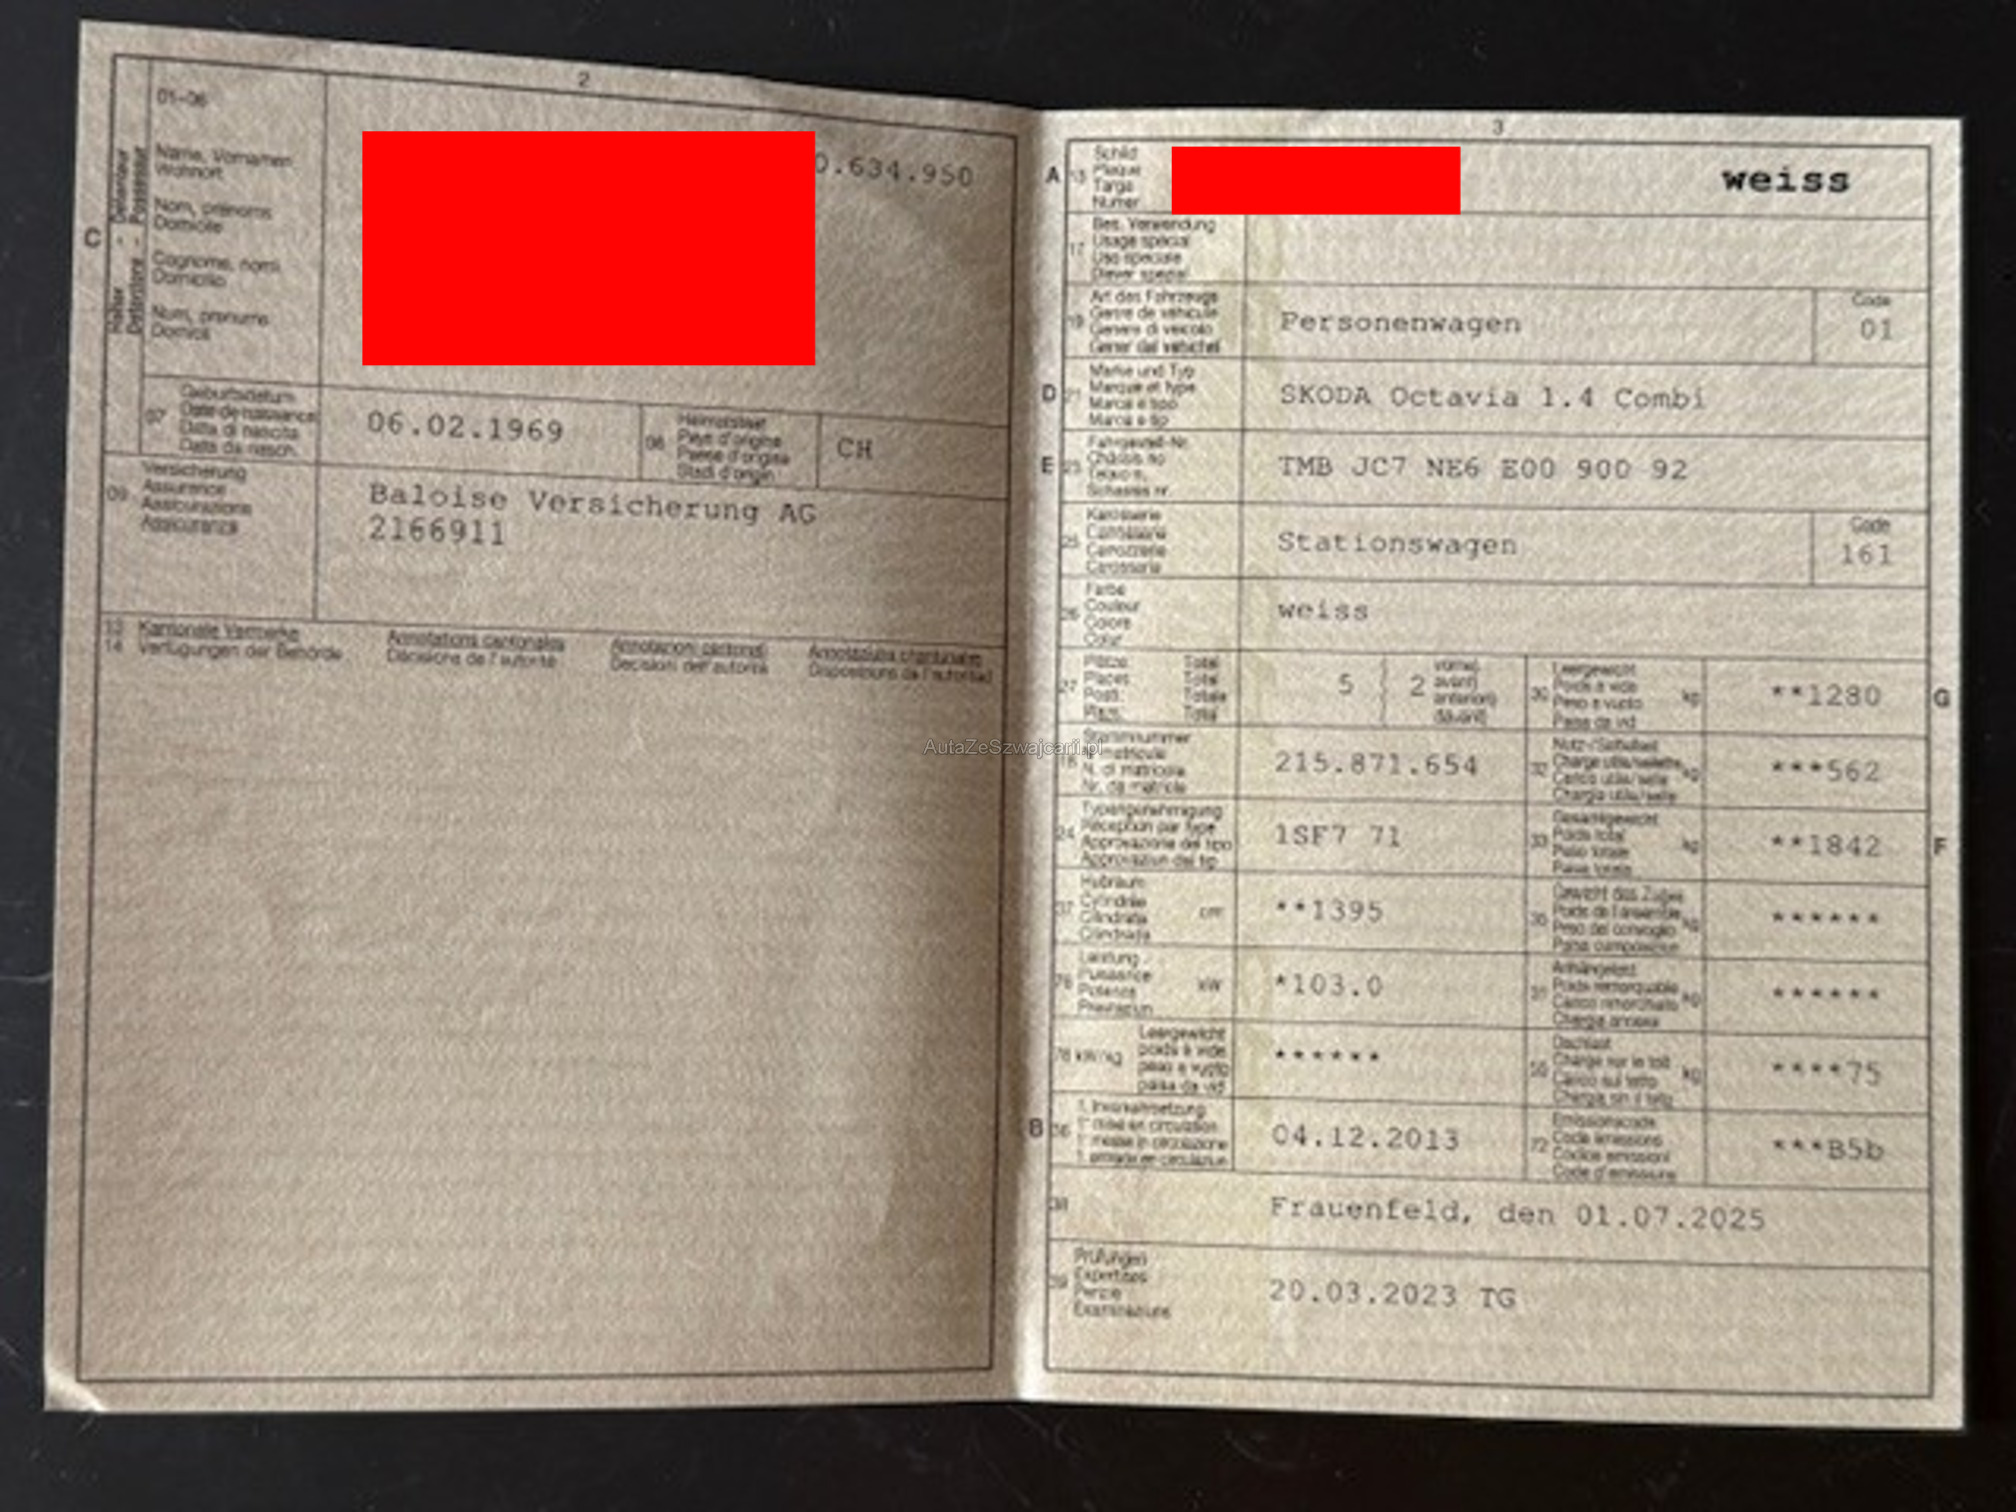 2
01-06
Name, Vornamen
Wohnort
Nom, prénoms
Domicile
Cognome, nomi
Domicilio
Num, prenums
Domicil
C
Halter - Détenteur
Detentore - Possessur
0.634.950
07
Geburtsdatum
Date de naissance
Data di nascita
Data da nasch.
06.02.1969
08
Heimatstaat
Pays d'origine
Paese d'origine
Stadi d'origin
CH
09
Versicherung
Assurance
Assicurazione
Assicuranza
Baloise Versicherung AG
2166911
13 Kantonale Vermerke Annotations cantonales Annotazioni cantonali Annotaziuns chantunalas
14 Verfügungen der Behörde Décisions de l'autorité Decisioni dell'autorità Disposiziuns da l'autoritad
3
A 15
Schild
Plaque
Targa
Numer
weiss
17
Bes. Verwendung
Usage spécial
Uso speciale
Diever spezial
19
Art des Fahrzeugs
Genre de véhicule
Genere di veicolo
Gener dal vehichel
Personenwagen
Code
01
D 21
Marke und Typ
Marque et type
Marca e tipo
Marca e tip
SKODA Octavia 1.4 Combi
E 23
Fahrgestell-Nr.
Châssis no
Telaio n.
Schassis nr.
TMB JC7 NE6 E00 900 92
25
Karosserie
Carrosserie
Carrozzeria
Carossaria
Stationswagen
Code
161
26
Farbe
Couleur
Colore
Colur
weiss
27
Plätze Total
Places Total
Posti Totale
Plazs Total
5
2
vorne)
avant)
anteriori)
davant)
30
Leergewicht
Poids à vide
Peso a vuoto
Paisa da vid
kg
**1280
G
18
Stammnummer
N. matricule
N. di matricola
Nr. da matricla
215.871.654
32
Nutz-/Sattellast
Charge utile/sellette
Carico utile/sella
Chargia utila/sella
kg
***562
AutaZeSzwajcarii.pl
24
Typengenehmigung
Réception par type
Approvazione del tipo
Approvaziun dal tip
1SF7 71
33
Gesamtgewicht
Poids total
Peso totale
Paisa totala
kg
**1842
F
37
Hubraum
Cylindrée
Cilindrata
Cilindrada
cm³
**1395
35
Gewicht des Zuges
Poids de l'ensemble
Peso del convoglio
Paisa cumposiziun
kg
******
76
Leistung
Puissance
Potenza
Prestaziun
kW
*103.0
31
Anhängelast
Poids remorquable
Carico rimorchiato
Chargia annexa
kg
******
78 kW/kg
Leergewicht
poids à vide
peso a vuoto
paisa da vid
******
55
Dachlast
Charge sur le toit
Carico sul tetto
Chargia sin il tetg
kg
****75
B 36
1. Inverkehrsetzung
1re mise en circulation
1a messa in circolazione
1. entrada en circulaziun
04.12.2013
72
Emissionscode
Code émissions
Codice emissioni
Code d'emissiuns
***B5b
38
Frauenfeld, den 01.07.2025
39
Prüfungen
Expertises
Perizie
Examinaziuns
20.03.2023 TG